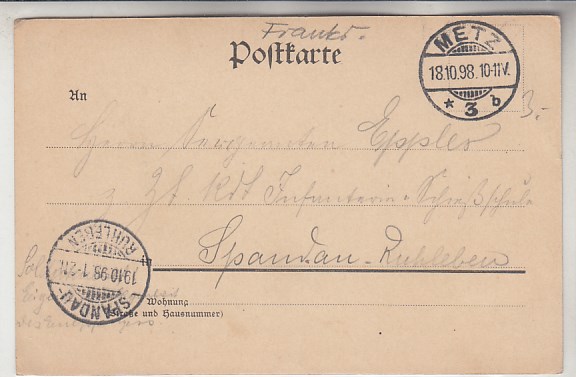 Frankr.
Postkarte
METZ
18.10.98. 10-11V.
* 3 b
3.-
An
Herrn Sergeanten Eppler
z. Zt. Kdt Infanterie-Schießschule
in
Spandau-Ruhleben
SPANDAU-RUHLEBEN
19.10.98. 1-2N.
Wohnung
(Straße und Hausnummer)